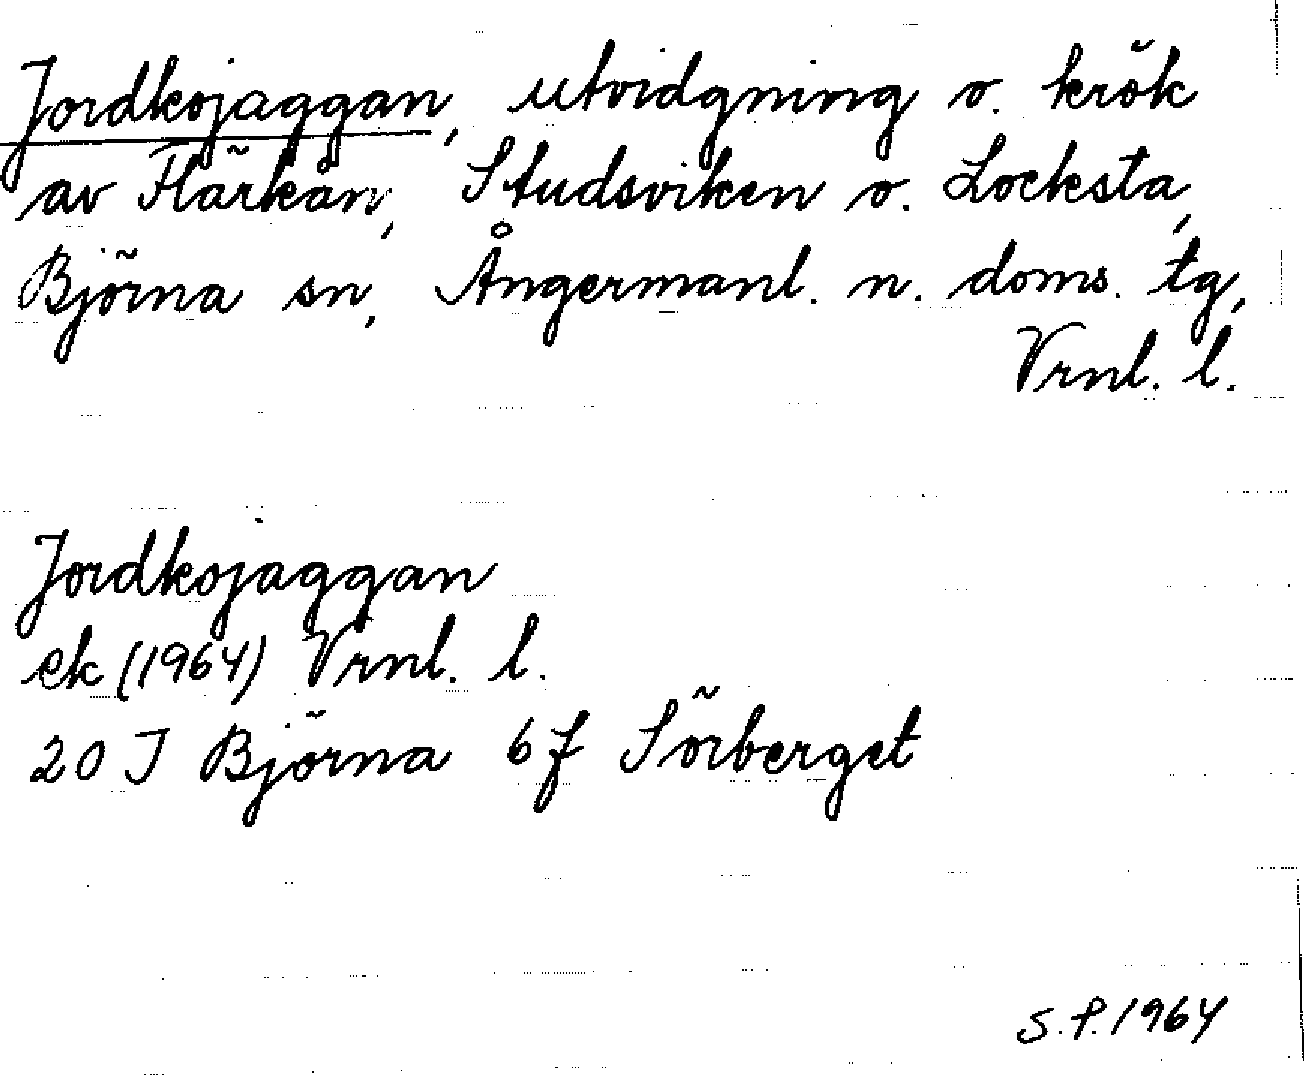 Jordkojaggan, utvidgning o. krök
av Flärkån, Studsviken o. Locksta,
Björna sn, Ångermanl. n. doms. tg,
Vrnl. l.
Jordkojaggan
ek (1964) Vrnl. l.
20 J Björna 6f Sörberget
S.P. 1964